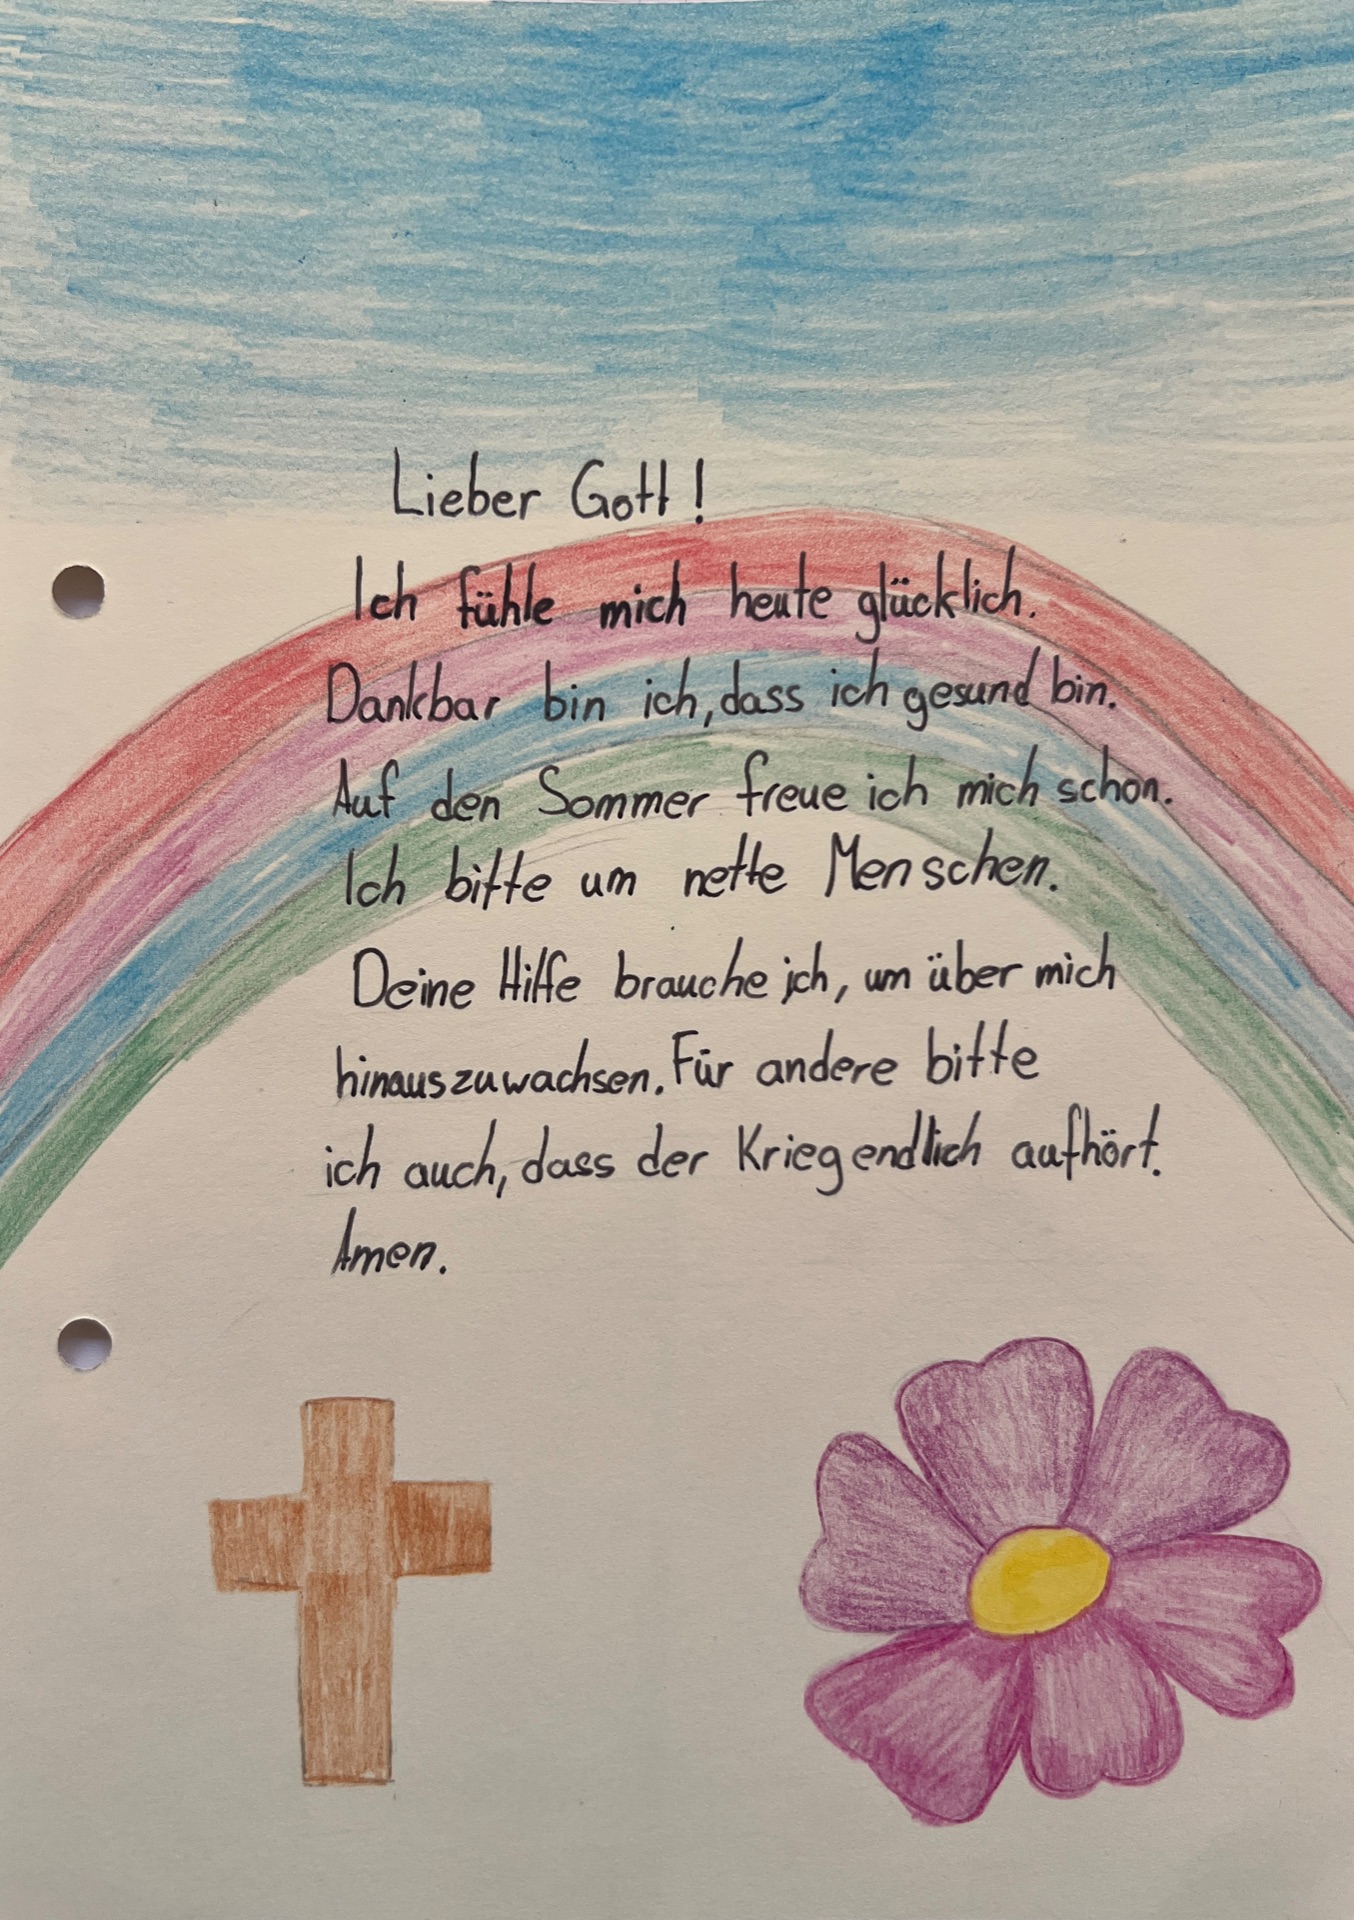 Lieber Gott!
Ich fühle mich heute glücklich.
Dankbar bin ich, dass ich gesund bin.
Auf den Sommer freue ich mich schon.
Ich bitte um nette Menschen.
Deine Hilfe brauche ich, um über mich
hinauszuwachsen. Für andere bitte
ich auch, dass der Krieg endlich aufhört.
Amen.